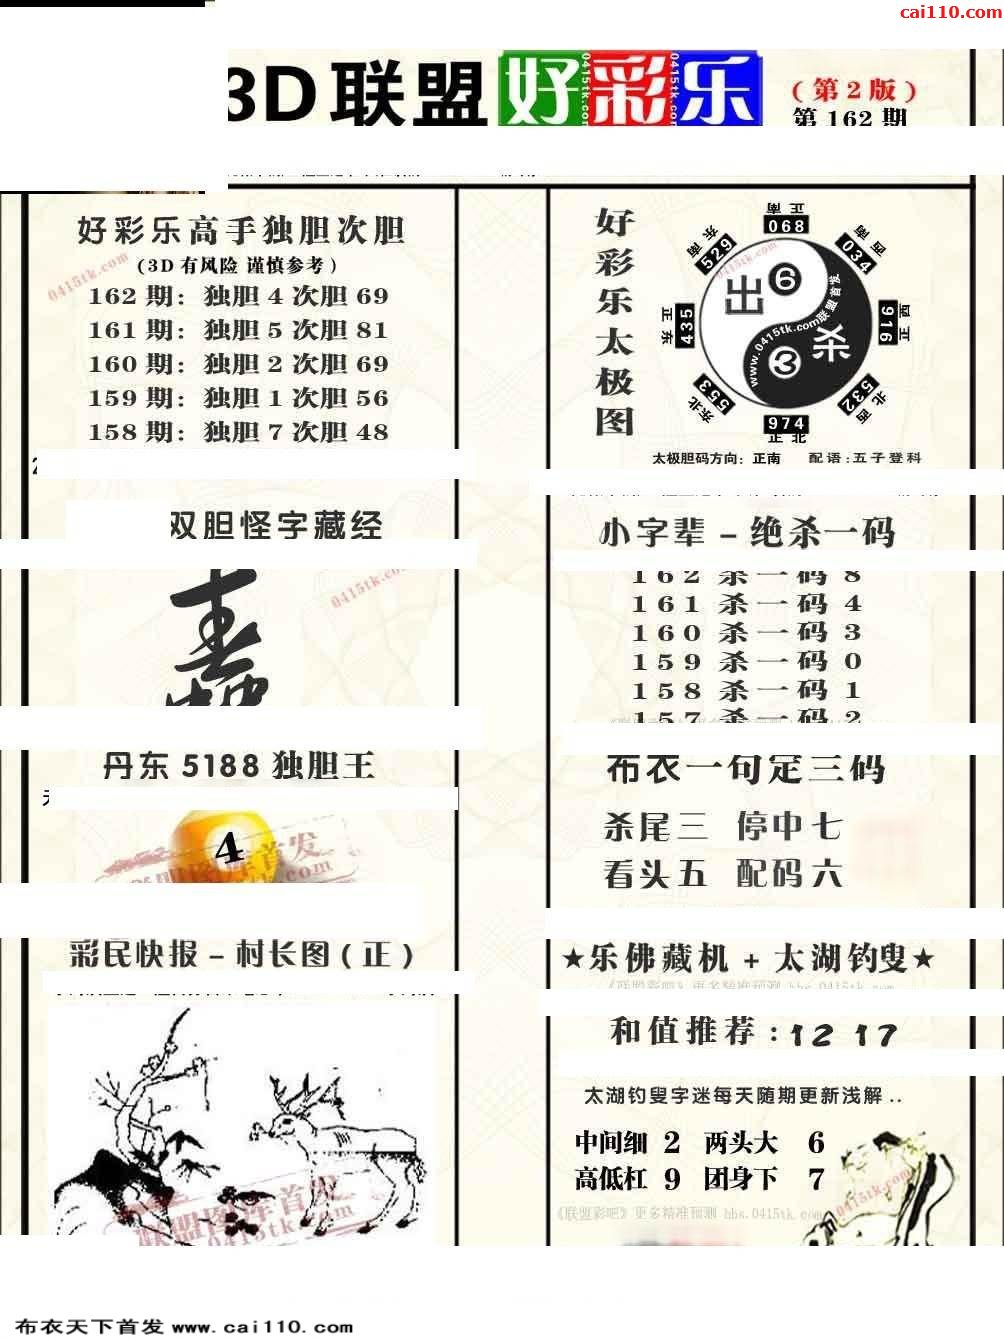 cai110.com
3D联盟 好彩乐
(第2版)
第162期
好彩乐高手独胆次胆
(3D有风险 谨慎参考)
162期: 独胆4次胆69
161期: 独胆5次胆81
160期: 独胆2次胆69
159期: 独胆1次胆56
158期: 独胆7次胆48
好彩乐太极图
正南 068
西南 034
西正 916
北西 532
正北 974
东北 553
正东 435
东南 529
出 6
杀 3
www.0415tk.com联盟首发
太极胆码方向: 正南 配语:五子登科
双胆怪字藏经
0415tk.com
小字辈－绝杀一码
162 杀一码 8
161 杀一码 4
160 杀一码 3
159 杀一码 0
158 杀一码 1
157 杀一码 2
丹东5188独胆王
4
联盟图库首发
布衣一句定三码
杀尾三 停中七
看头五 配码六
彩民快报－村长图(正)
★乐佛藏机+太湖钓叟★
和值推荐:12 17
太湖钓叟字迷每天随期更新浅解..
中间细 2 两头大 6
高低杠 9 团身下 7
《联盟彩吧》更多精准预测 bbs.0415tk.com
联盟图库首发
0415tk.com
布衣天下首发 www.cai110.com